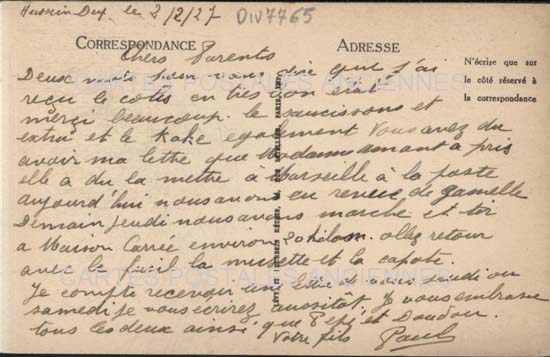 Hussein Dey le 2/2/27
DIV7765
CORRESPONDANCE
ADRESSE
Chers Parents
N'écrire que sur
le côté réservé à
la correspondance
Deux mots pour vous dire que j'ai
reçu le colis en très bon état
merci beaucoup. le saucissons et
extra et le Kake egalement Vous avez du
avoir ma lettre que Madame amant a pris
elle a du la mettre à Marseille à la poste
aujourd'hui nous avons eu revue de gamelle
Demain jeudi nous avons marche et tir
a Maison Carrée environ 20 kilom. allez retour
avec le fusil la musette et la capote.
Je compte recevoir une lettre de vous jeudi ou
samedi je vous ecrirez aussitôt. Je vous embrasse
tous les deux ainsi que Pepé et Doudou.
Votre fils Paul
CARTES POSTALES ANCIENNES
CARTES POSTALES ANCIENNES